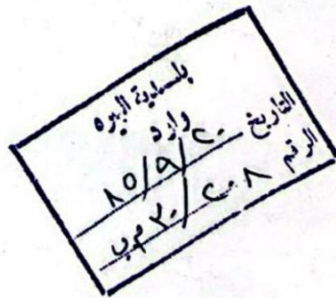 بلدية البيره
وارد
التاريخ ٢٠/٩/٨٥
الرقم ٢٠٨/٣٠/م ب